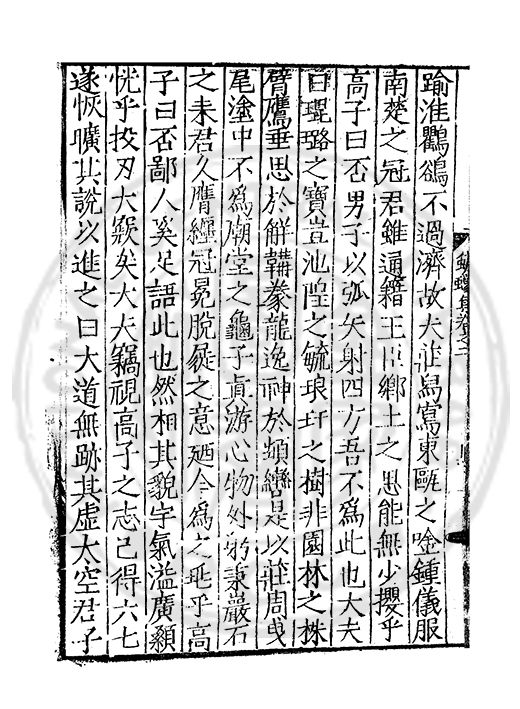 蠛蠓集卷之二
踰淮鸜鵒不過濟故大莊舄寫東甌之唫鍾儀服
南楚之冠君雖通籍王臣鄉土之思能無少攖乎
高子曰否男子以弧矢射四方吾不爲此也大夫
曰琨璐之寶豈池隍之毓琅玕之樹非園林之株
臂鷹垂思於解韝豢龍逸神於頻轡是以莊周曳
尾塗中不爲廟堂之龜子眞游心物外躬秉巖石
之耒君久膺纓冠冕脫屣之意廼今爲之乖乎高
子曰否鄙人奚足語此也然相其貌宇氣溢廣顙
恍乎投刃大窾矣大夫竊視高子之志已得六七
遂恢曠其說以進之曰大道無跡其虛太空君子